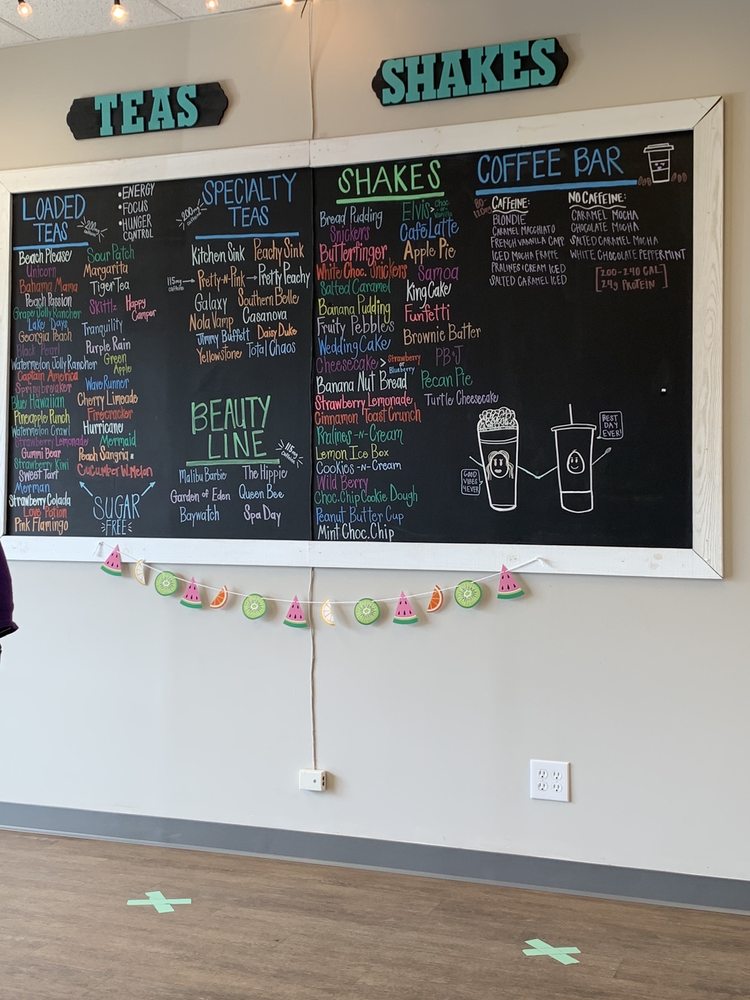 TEAS
SHAKES
LOADED
TEAS
200mg
caffeine
•ENERGY
•FOCUS
•HUNGER
CONTROL
Beach Please
Unicorn
Bahama Mama
Peach Passion
Grape Jolly Rancher
Lake Days
Georgia Peach
Black Pearl
Watermelon Jolly Rancher
Captain America
Springbreaker
Blue Hawaiian
Pineapple Punch
Watermelon Crawl
Strawberry Lemonade
Gummi Bear
Strawberry Kiwi
Sweet Tart
Merman
Strawberry Colada
Love Potion
Pink Flamingo
Sour Patch
Margarita
Tiger Tea
Skittlz
Happy
Camper
Tranquility
Purple Rain
Green
Apple
Wave Runner
Cherry Limeade
Firecracker
Hurricane
Mermaid
Peach Sangria
Cucumber W.Melon
SUGAR
FREE
SPECIALTY
TEAS
200mg
caffeine
Kitchen Sink
Peachy Sink
115mg
caffeine
Pretty-n-Pink
Pretty Peachy
Galaxy
Southern Belle
Nola Vamp
Casanova
Jimmy Buffett
Daisy Duke
Yellowstone
Total Chaos
BEAUTY
LINE
115mg
caffeine
Malibu Barbie
The Hippie
Garden of Eden
Queen Bee
Baywatch
Spa Day
SHAKES
Bread Pudding
Snickers
Butterfinger
White Choc. Unicorn
Salted Caramel
Banana Pudding
Fruity Pebbles
Wedding Cake
Cheesecake > Strawberry
or
Blueberry
Banana Nut Bread
Strawberry Lemonade
Cinnamon Toast Crunch
Pralines-n-Cream
Lemon Ice Box
Cookies-n-Cream
Wild Berry
Choc. Chip Cookie Dough
Peanut Butter Cup
Mint Choc. Chip
Elvis > Choc
or
Vanilla
Café Latte
Apple Pie
Samoa
King Cake
Funfetti
Brownie Batter
PB+J
Pecan Pie
Turtle Cheesecake
COFFEE BAR
CAFFEINE:
BLONDIE
CARAMEL MACCHIATO
FRENCH VANILLA CAPP
ICED MOCHA FRAPPE
PRALINES & CREAM ICED
SALTED CARAMEL ICED
NO CAFFEINE:
CARAMEL MOCHA
CHOCOLATE MOCHA
SALTED CARAMEL MOCHA
WHITE CHOCOLATE PEPPERMINT
200-240 CAL
24g PROTEIN
GOOD
VIBES
4EVER
BEST
DAY
EVER!